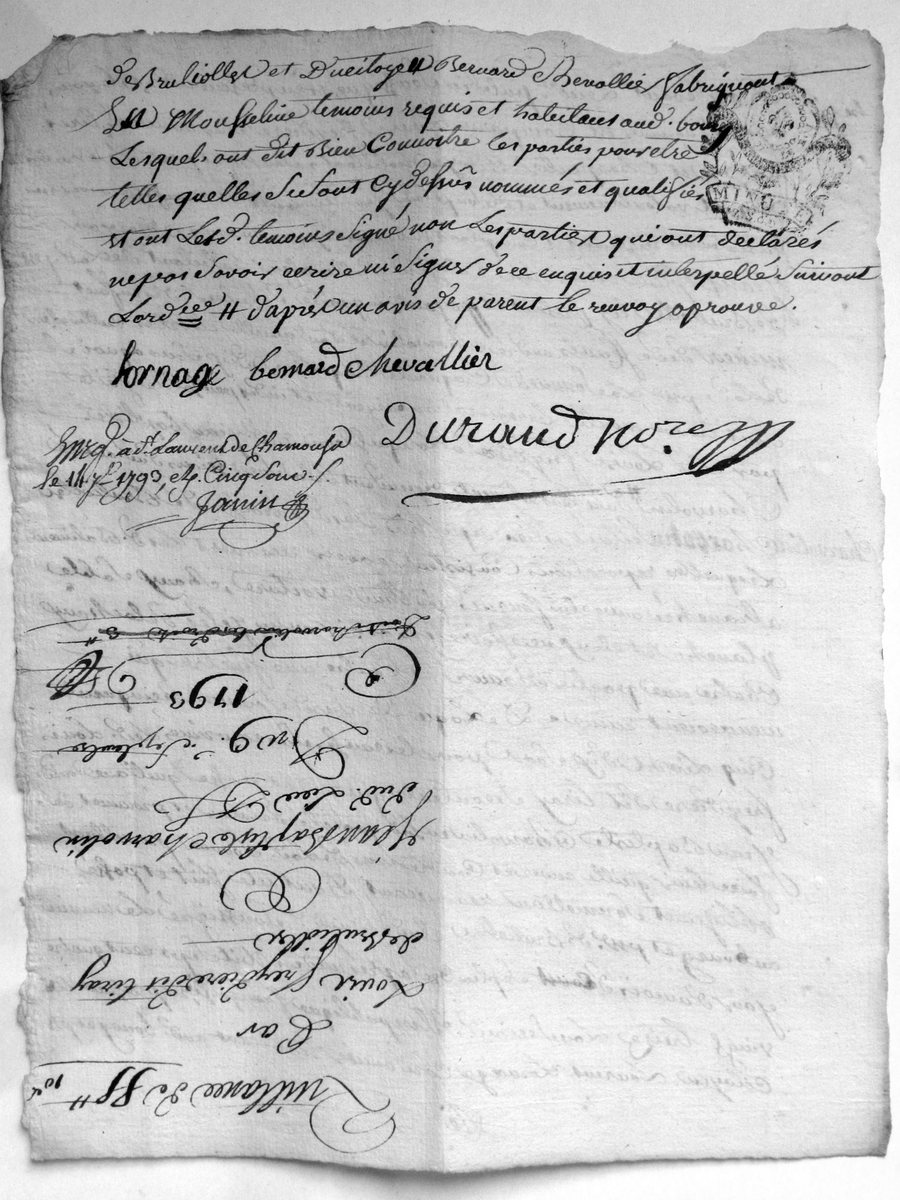 de Brulioller et Ducitoyen Bernard Chevallier fabriquant
En Mousseline temoins requis et habitans aud. bourg
Lesquels ont dit Bien Connoitre les parties pour etre
telles quelles Se Sont Cy dessus nommés et qualifiés
et ont Lesd. temoins Signé non Les parties qui ont déclarés
ne pas Savoir ecrire ni Signer de ce enquis et interpellé Suivant
Lord.ce # d'après un avis de parent le renvoy aprouvé.
bernard chevallier
Durand no.re
Enrg. à St. Laurent de Chamousset
le 14 7.bre 1793,
Janin
Quittance de
Par
Louis Freydiere dit tiray
de Brulioller
A
Jean Baptiste Charvolin
dud. Lieu
Du 9.e Septembre
1793